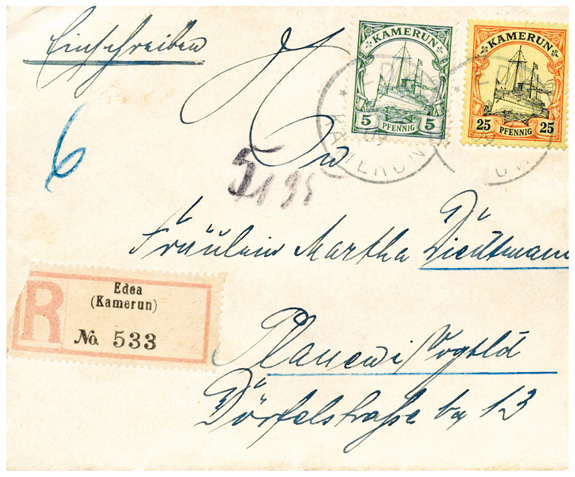 Einschreiben
KAMERUN
5 PFENNIG 5
KAMERUN
25 PFENNIG 25
EDEA
KAMERUN
6
An
Fräulein Martha
R
Edea
(Kamerun)
No. 533
Plauen i/Vogtld
Dörfelstraße 13